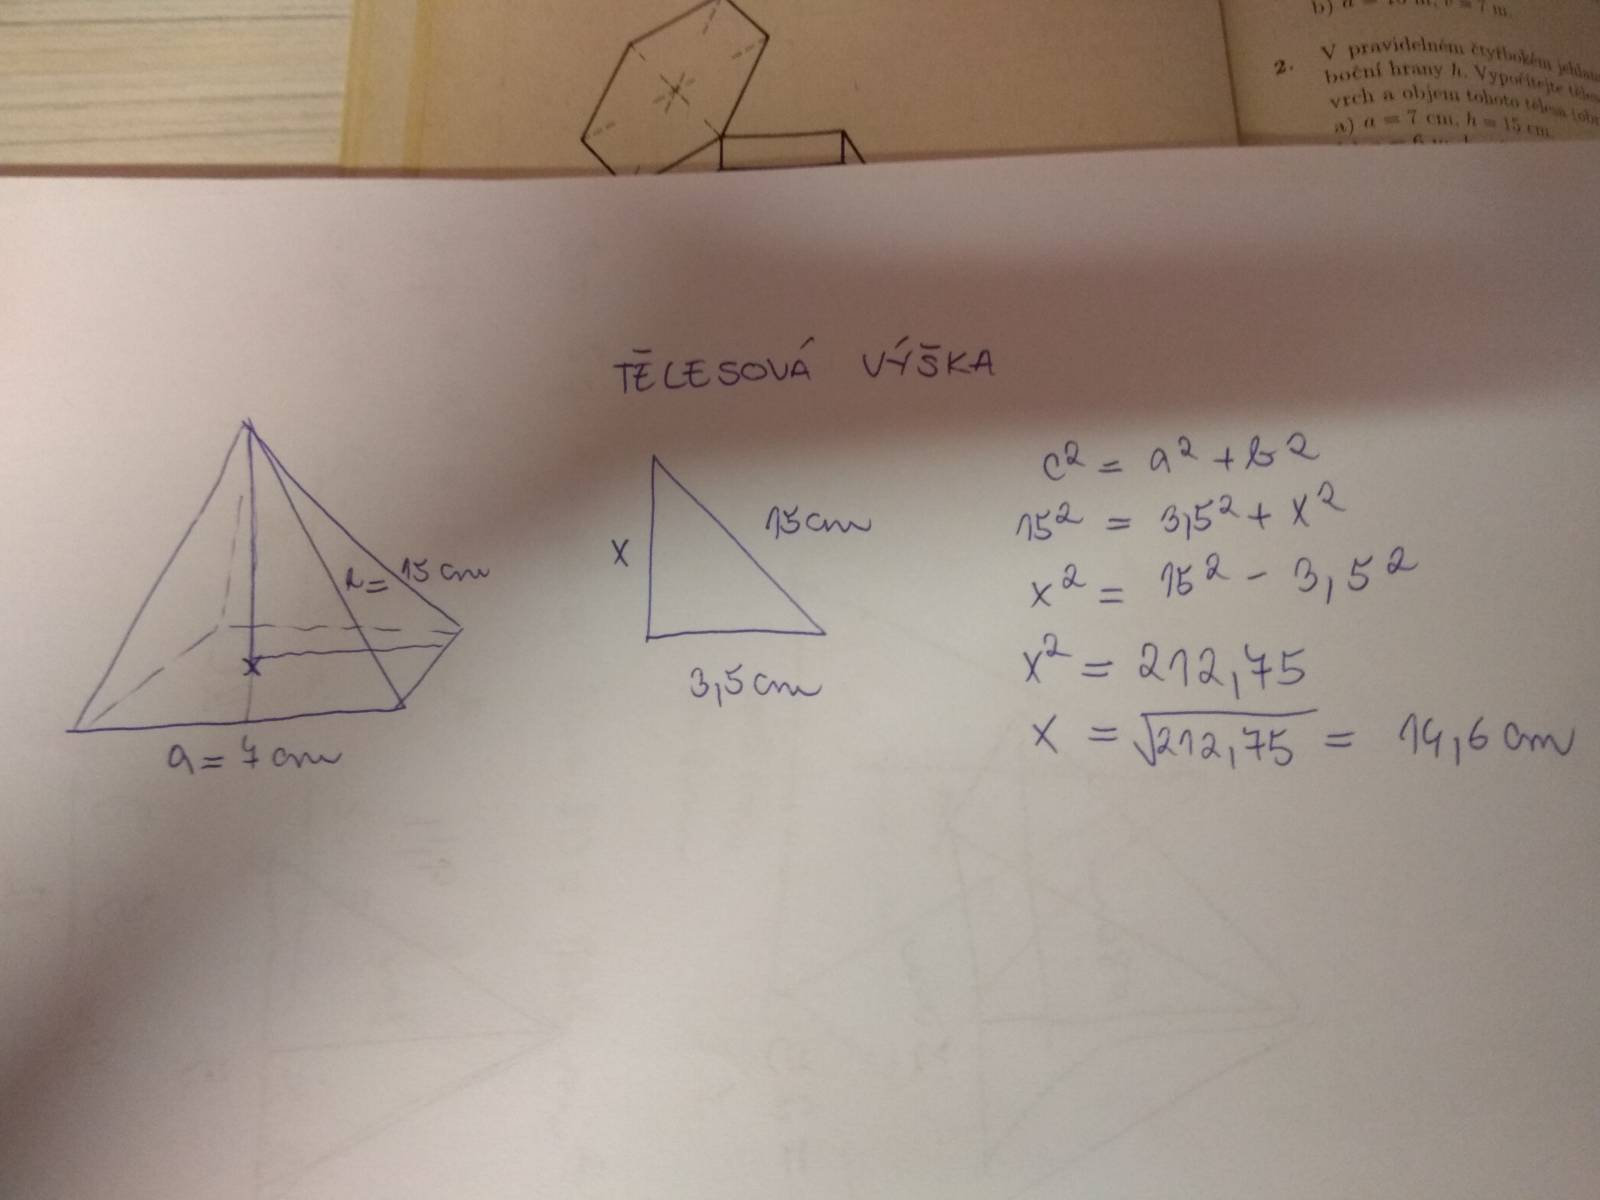 b) a = 10 m, v = 7 m.
2. V pravidelném čtyřbokém
boční hrany h. Vypočítejte
vrch a objem tohoto tělesa
a) a = 7 cm, h = 15 cm
TĚLESOVÁ VÝŠKA
h = 15 cm
x
a = 7 cm
x
15 cm
3,5 cm
c² = a² + b²
15² = 3,5² + x²
x² = 15² - 3,5²
x² = 212,75
x = √212,75 = 14,6 cm